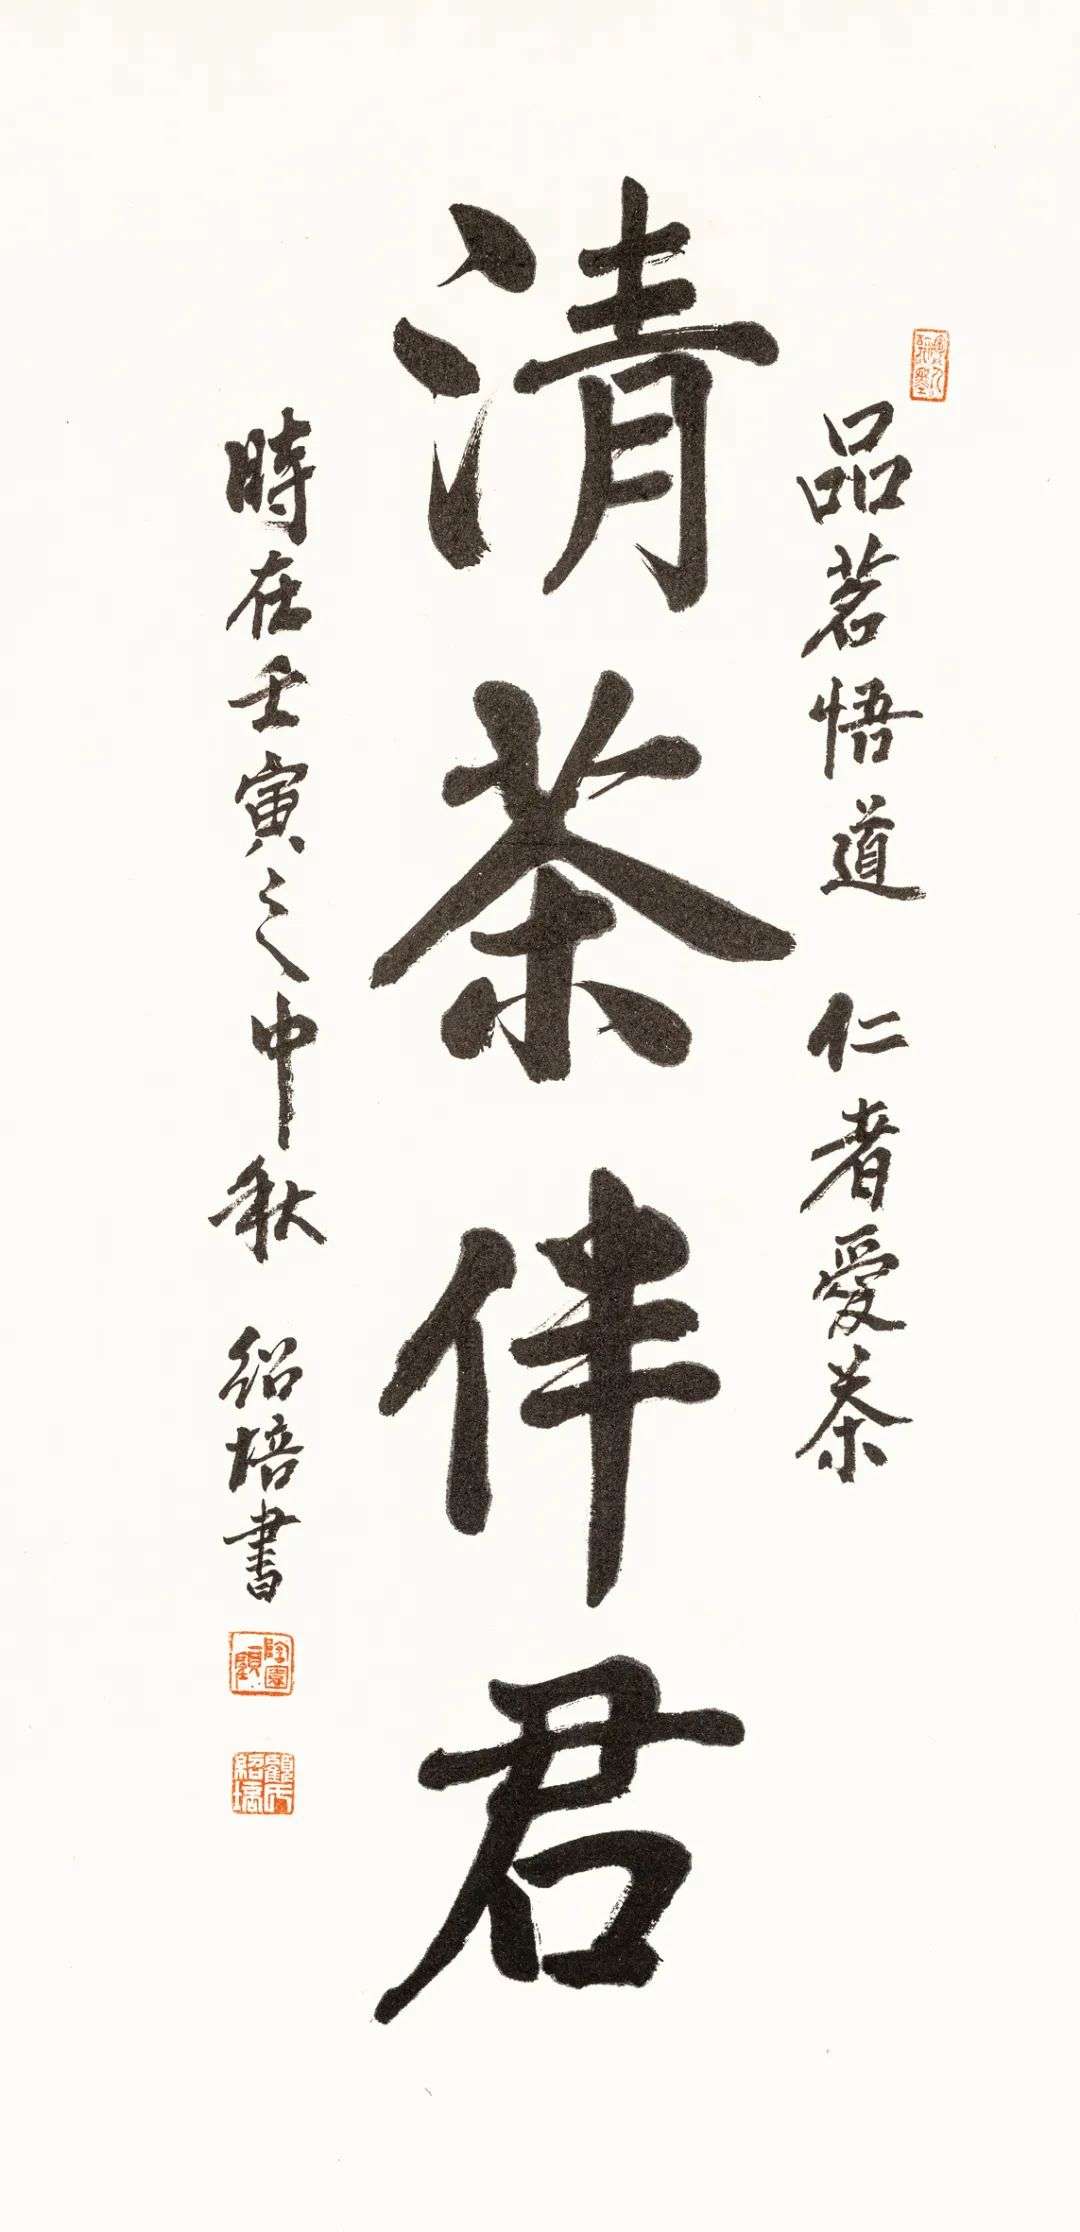 品茗悟道 仁者愛茶
清茶伴君
時在壬寅之中秋 绍培書
顧氏紹培